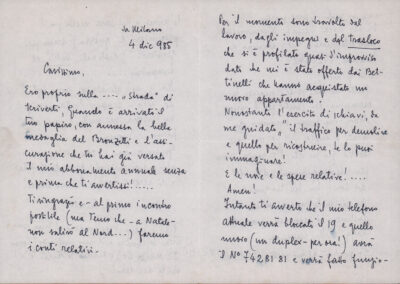 da Milano
4 dic 985
Carissimo,
Ero proprio sulla .... "strada" di
scriverti, quando è arrivato il
tuo papiro, con annessa la bella
medaglia del Bronzetti e l'assi-
curazione che tu hai già versato
il mio abbonamento annuale senza
e prima che ti avvertissi!.....
Ti ringrazio e - al primo incontro
possibile (ma temo che - a Natale -
non salirò al Nord...) faremo
i conti relativi.
Per il momento sono travolto dal
lavoro, dagli impegni e dal trasloco
che si è profilato quasi d'improvviso
dato che mi è stato offerto dai Bet-
tinelli che hanno acquistato un
nuovo appartamento.
Nonostante l'esercito di schiavi, da
me guidato, il traffico per demolire
e quello per ricostruire, te lo puoi
immaginare!
E le noie e le spese relative!.....
Amen!
Intanto ti avverto che il mio telefono
attuale verrà bloccato il 19 e quello
nuovo (un duplex - per ora!) avrà
il N° 7428181 e verrà fatto funzio-